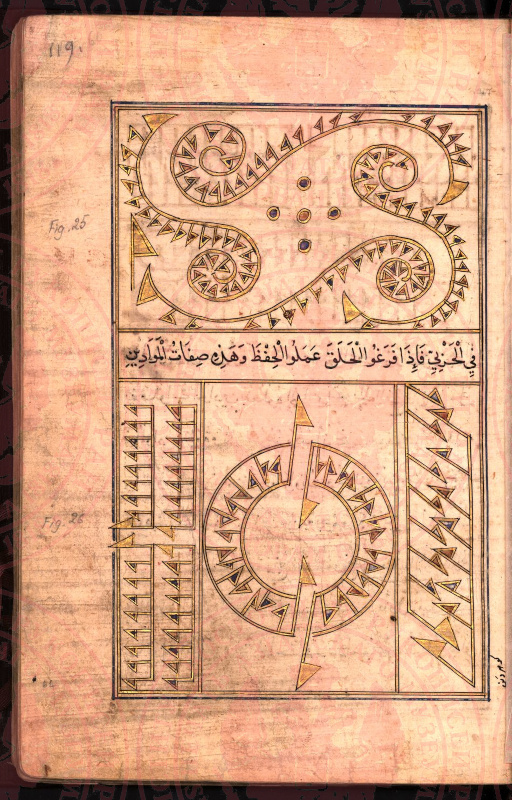 119.
Fig. 25
في الحَرْبي فَإِذَا فَرَغُوا لْحَلَقَ عَمَلُوا لْحِفْظَ وَهَذِهِ صِفَاتُ الْمَوَادِينِ
Fig. 26